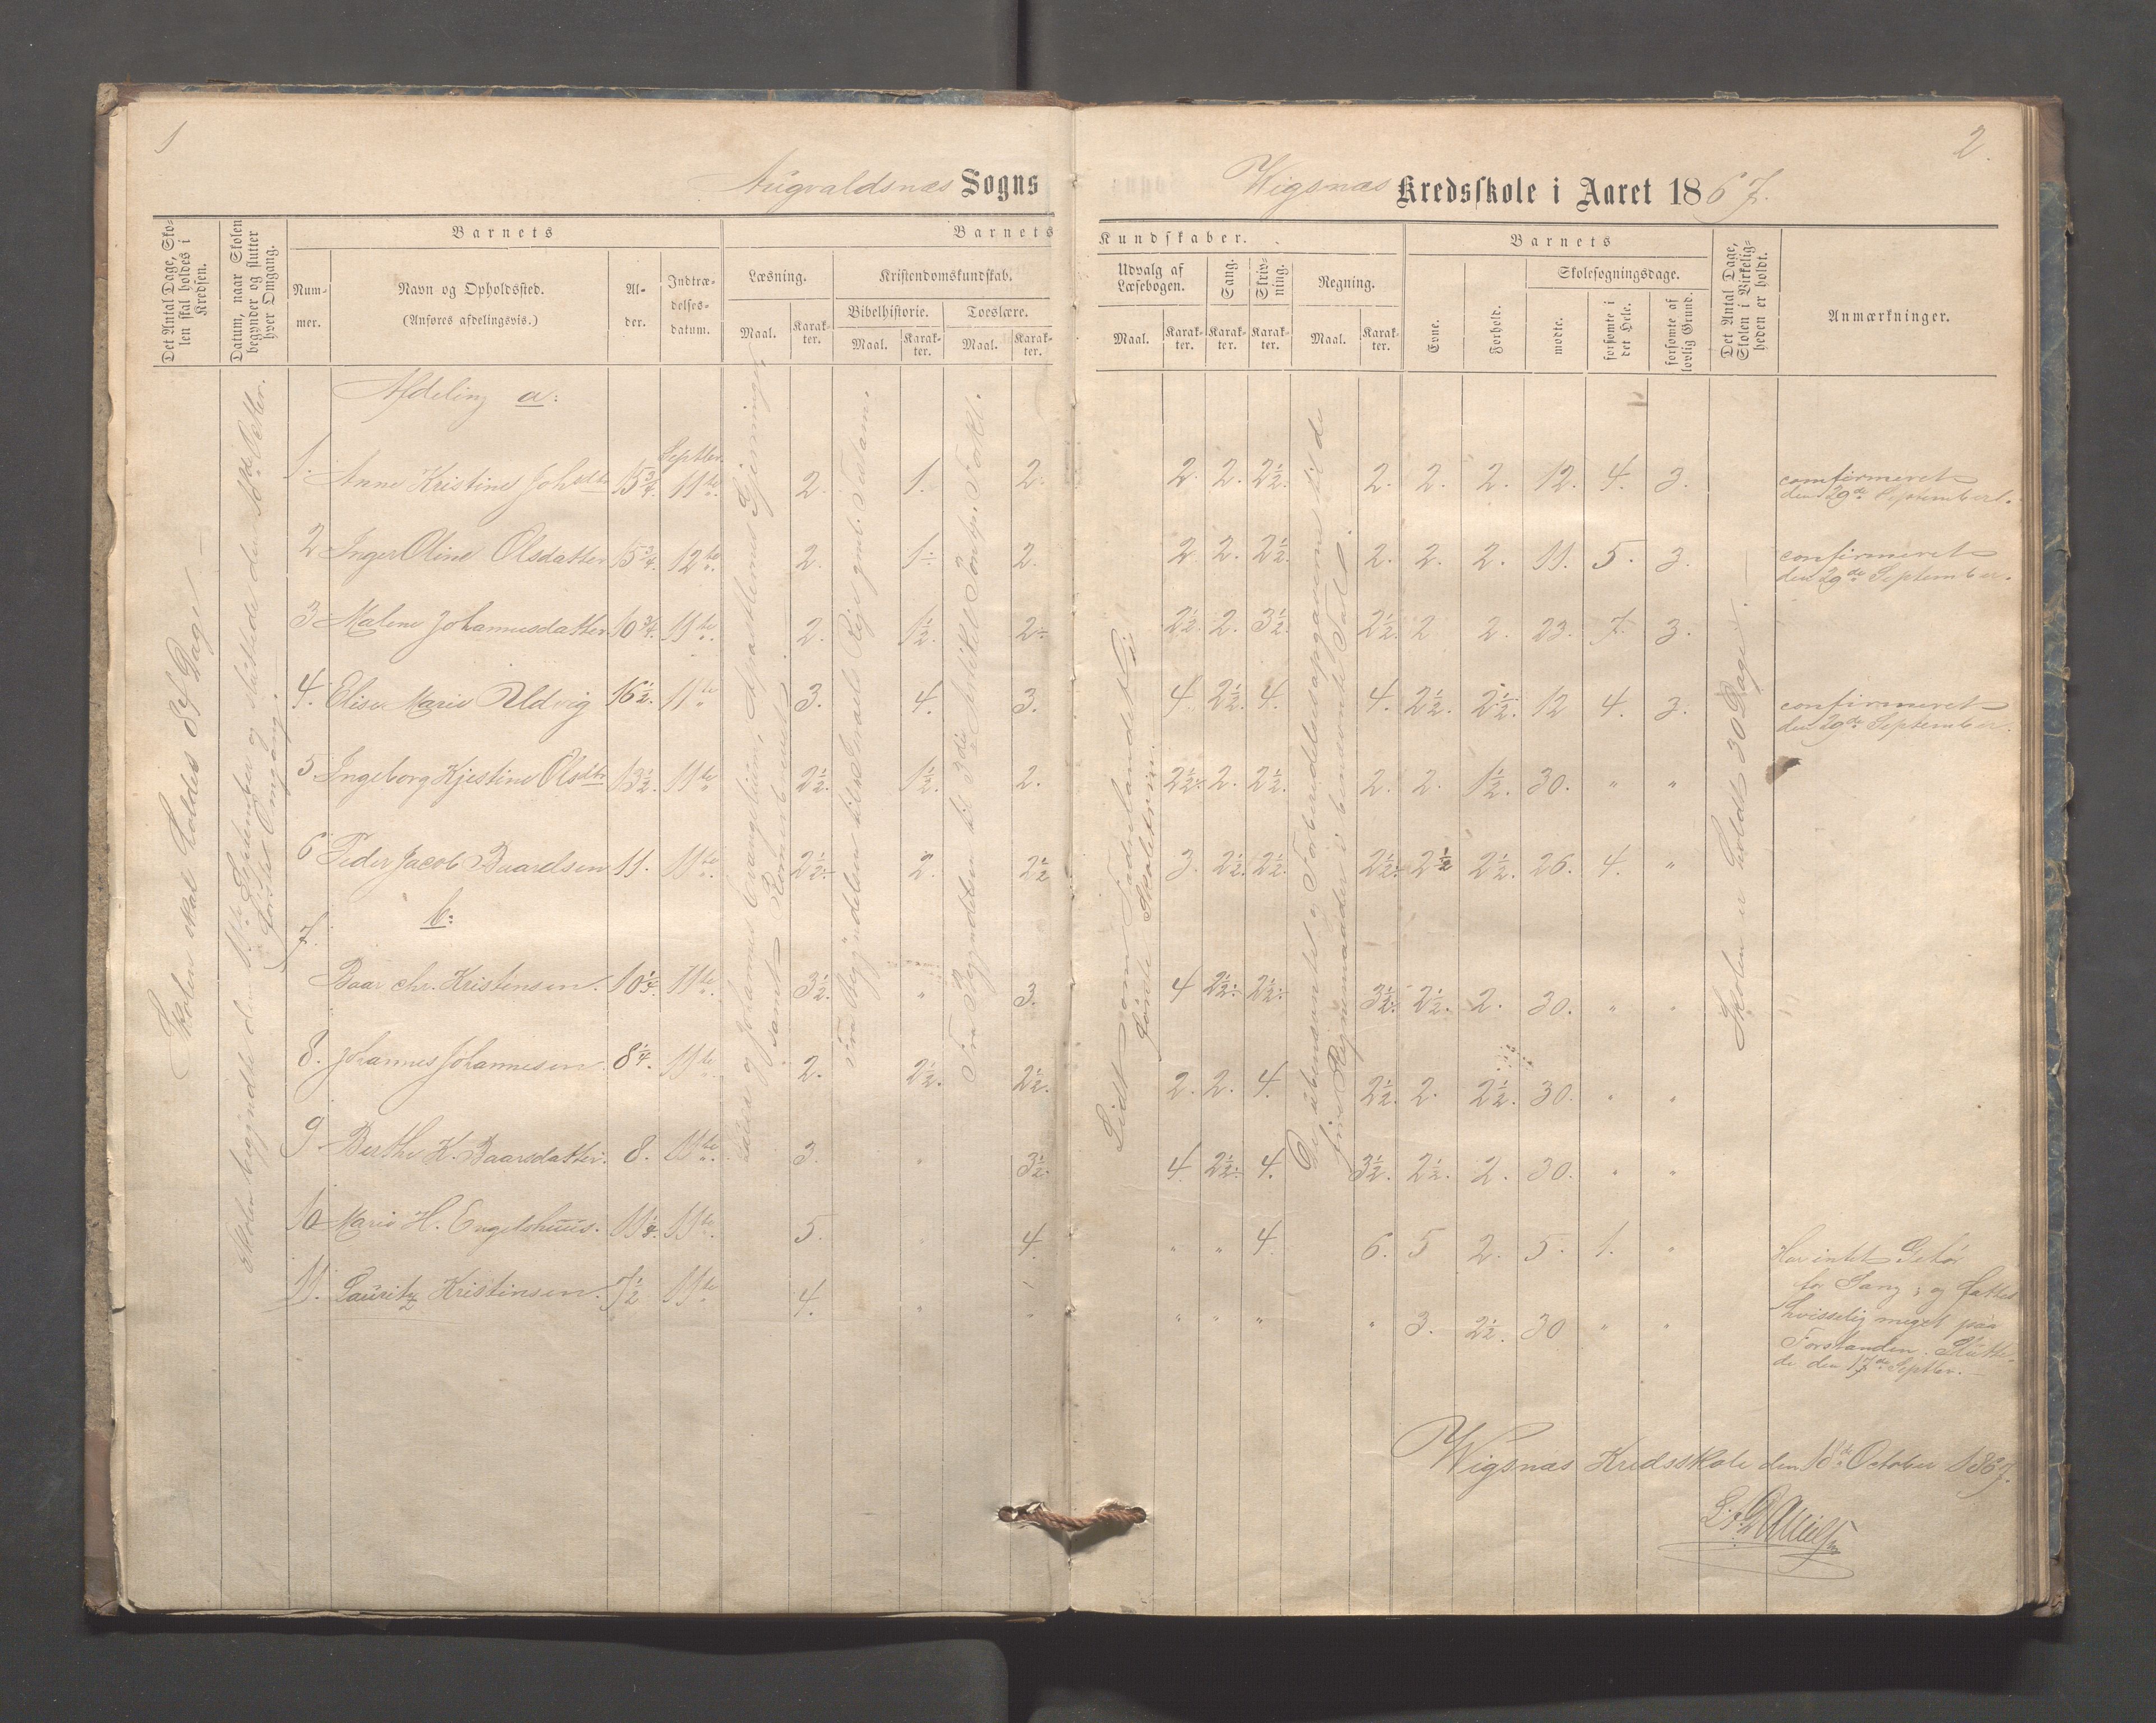 1
Augvaldsnæs Sogns
Det Antal Dage, Skolen skal holdes i Kredsen.
Datum, naar Skolen begynder og slutter hver Omgang.
Barnets
Nummer.
Navn og Opholdssted.
(Anføres afdelingsvis.)
Alder.
Indtrædelsesdatum.
Barnets
Læsning.
Maal.
Karakter.
Kristendomskundskab.
Bibelhistorie.
Maal.
Karakter.
Troeslære.
Maal.
Karakter.
Skolen skal holdes 84 Dage
Skolen begyndte den 11te September og sluttede den 10de Octbr.
første Omgang.
Johannes Evangelium, Apostlernes Gjerninger
samt Romerbrevet
Fra Begyndelsen til
Fra Begyndelsen til 3die Artikel
Afdeling a:
Septbr.
1. Anne Kristine Johsdtr 15 3/4. 11te 2. 1. 2.
2 Inger Oline Olsdatter 15 3/4. 12te 2. 1÷ 2.
3 Malene Johannesdatter 10 3/4. 11te 2. 1 1/2. 2÷
4. Elise Marie Aldvig 16 1/2. 11te 3. 4. 3.
5 Ingeborg Kjestine Olsdtr 13 1/2. 11te 2 1/2. 1 1/2. 2.
6 Peder Jacob Baardsen 11. 11te 2 1/2÷ 2. 2 1/2
b:
7. Baar Chr. Kristensen. 10 1/4. 11te 3 1/2. " 3.
8. Johannes Johannesen. 8 1/4. 11te 2. 2 1/2. 2 1/2.
9. Berthe K. Baarsdatter. 8. 11te 3. " 3 1/2.
10 Marie H. Engelshuus. 11te 5. " 4.
11. Lauritz Kristensen. 7 1/2 11te 4. "
2.
Wigsnæs Kredsskole i Aaret 1867.
Kundskaber.
Udvalg af Læsebogen.
Maal.
Karakter.
Sang.
Karakter.
Skrivning.
Karakter.
Regning.
Maal.
Karakter.
Barnets
Evne.
Forhold.
Skolesøgningsdage.
mødte.
forsømte i det Hele.
forsømte af lovlig Grund.
Det Antal Dage, Skolen i Virkeligheden er holdt.
Anmærkninger.
Lidt om Fædrelandet
første Skoletrin.
De
fire Regnemaader i benævnte Tal.
Skolen er holdt 30 Dage.
2. 2. 2 1/2. 2. 2. 2. 12. 4. 3. confirmeret
den 29de September.
2. 2. 2 1/2. 2. 2. 2. 11. 5. 3. confirmeret
den 29de September.
2 1/2. 2. 3 1/2. 2 1/2. 2 2. 23. 7. 3.
4 2 1/2. 4. 4. 2 1/2. 2 1/2. 12 4. 3. confirmeret
den 29de September.
2 1/2. 2. 2 1/2. 2. 2. 1 1/2. 30. " "
3. 2 1/2. 2 1/2. 2 1/2. 2 1/2 2 1/2. 26. 4. "
4 2 1/2. 2 1/2. 3 1/2. 2 1/2. 2. 30. " "
2. 2. 4. 2 1/2. 2. 2 1/2. 30. " "
4. 2 1/2. 4. 3 1/2. 2 1/2. 2. 30. " "
" " 4. 6. 5 2. 5. 1. " Har intet Gehør
for Sang; og fattes
hvisselig meget paa
Forstanden. Slutte-
de den 17de Septbr.
" " " " 3. 2 1/2. 30 " "
Wigsnæs Kredsskole den 10de October 1867.